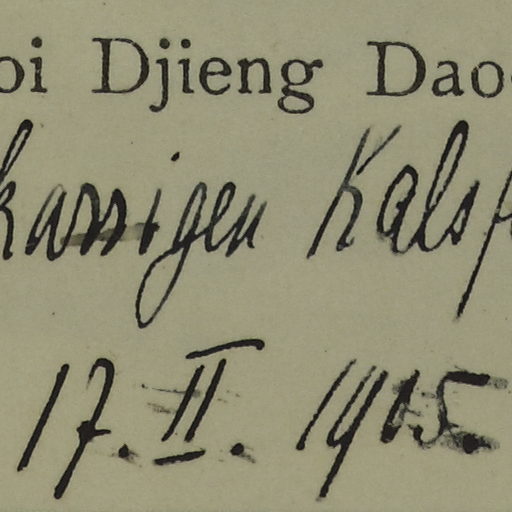 oi Djieng Dao
karrigen Kals
17. II. 1905.